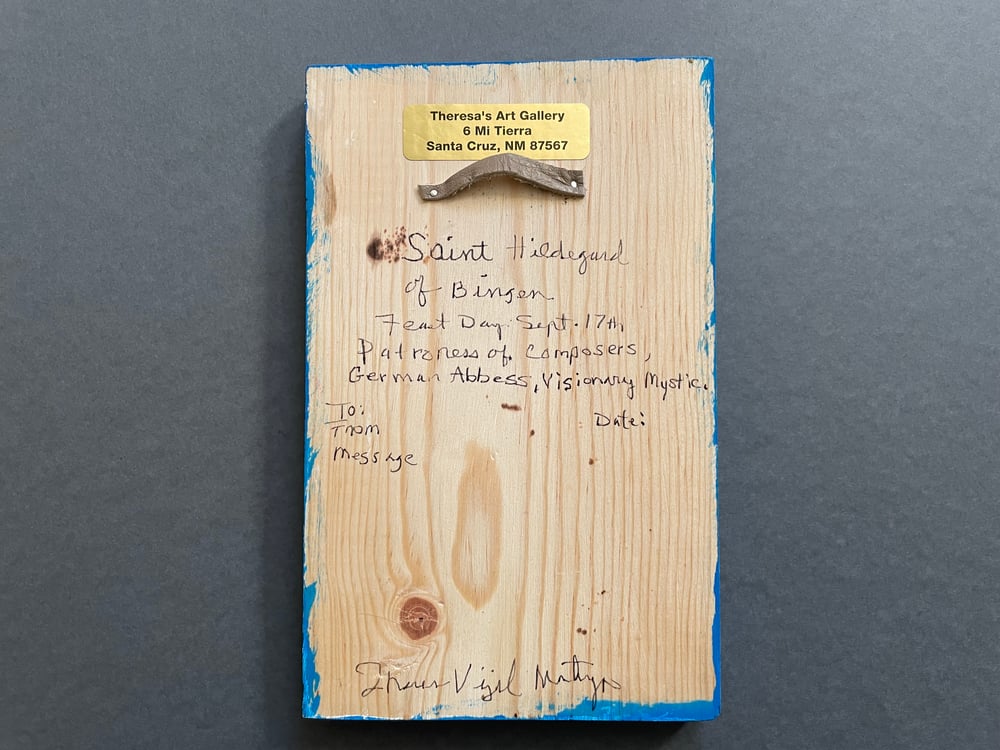 Theresa's Art Gallery
6 Mi Tierra
Santa Cruz, NM 87567
Saint Hildegard
of Bingen
Feast Day Sept. 17th
Patroness of Composers,
German Abbess, Visionary Mystic.
To:
Date:
From
Message
Vigil